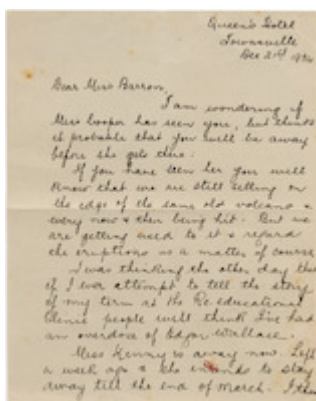 Queen's Hotel
Townsville
Dec 21st 1936
Dear Miss Barron,
I am wondering if
Miss Cooper has seen you, but thinks
it probable that you will be away
before she gets there.
If you have seen her you will
know that we are still sitting on
the edge of the same old volcano &
every now & then being hit. But we
are getting used to it & regard
the eruptions as a matter of course.
I was thinking the other day that
if I ever attempt to tell the story
of my term at the Re-educational
Clinic people will think I've had
an overdose of Edgar Wallace.
Miss Kenny is away now. Left
a week ago & she intends to stay
away till the end of March. I then